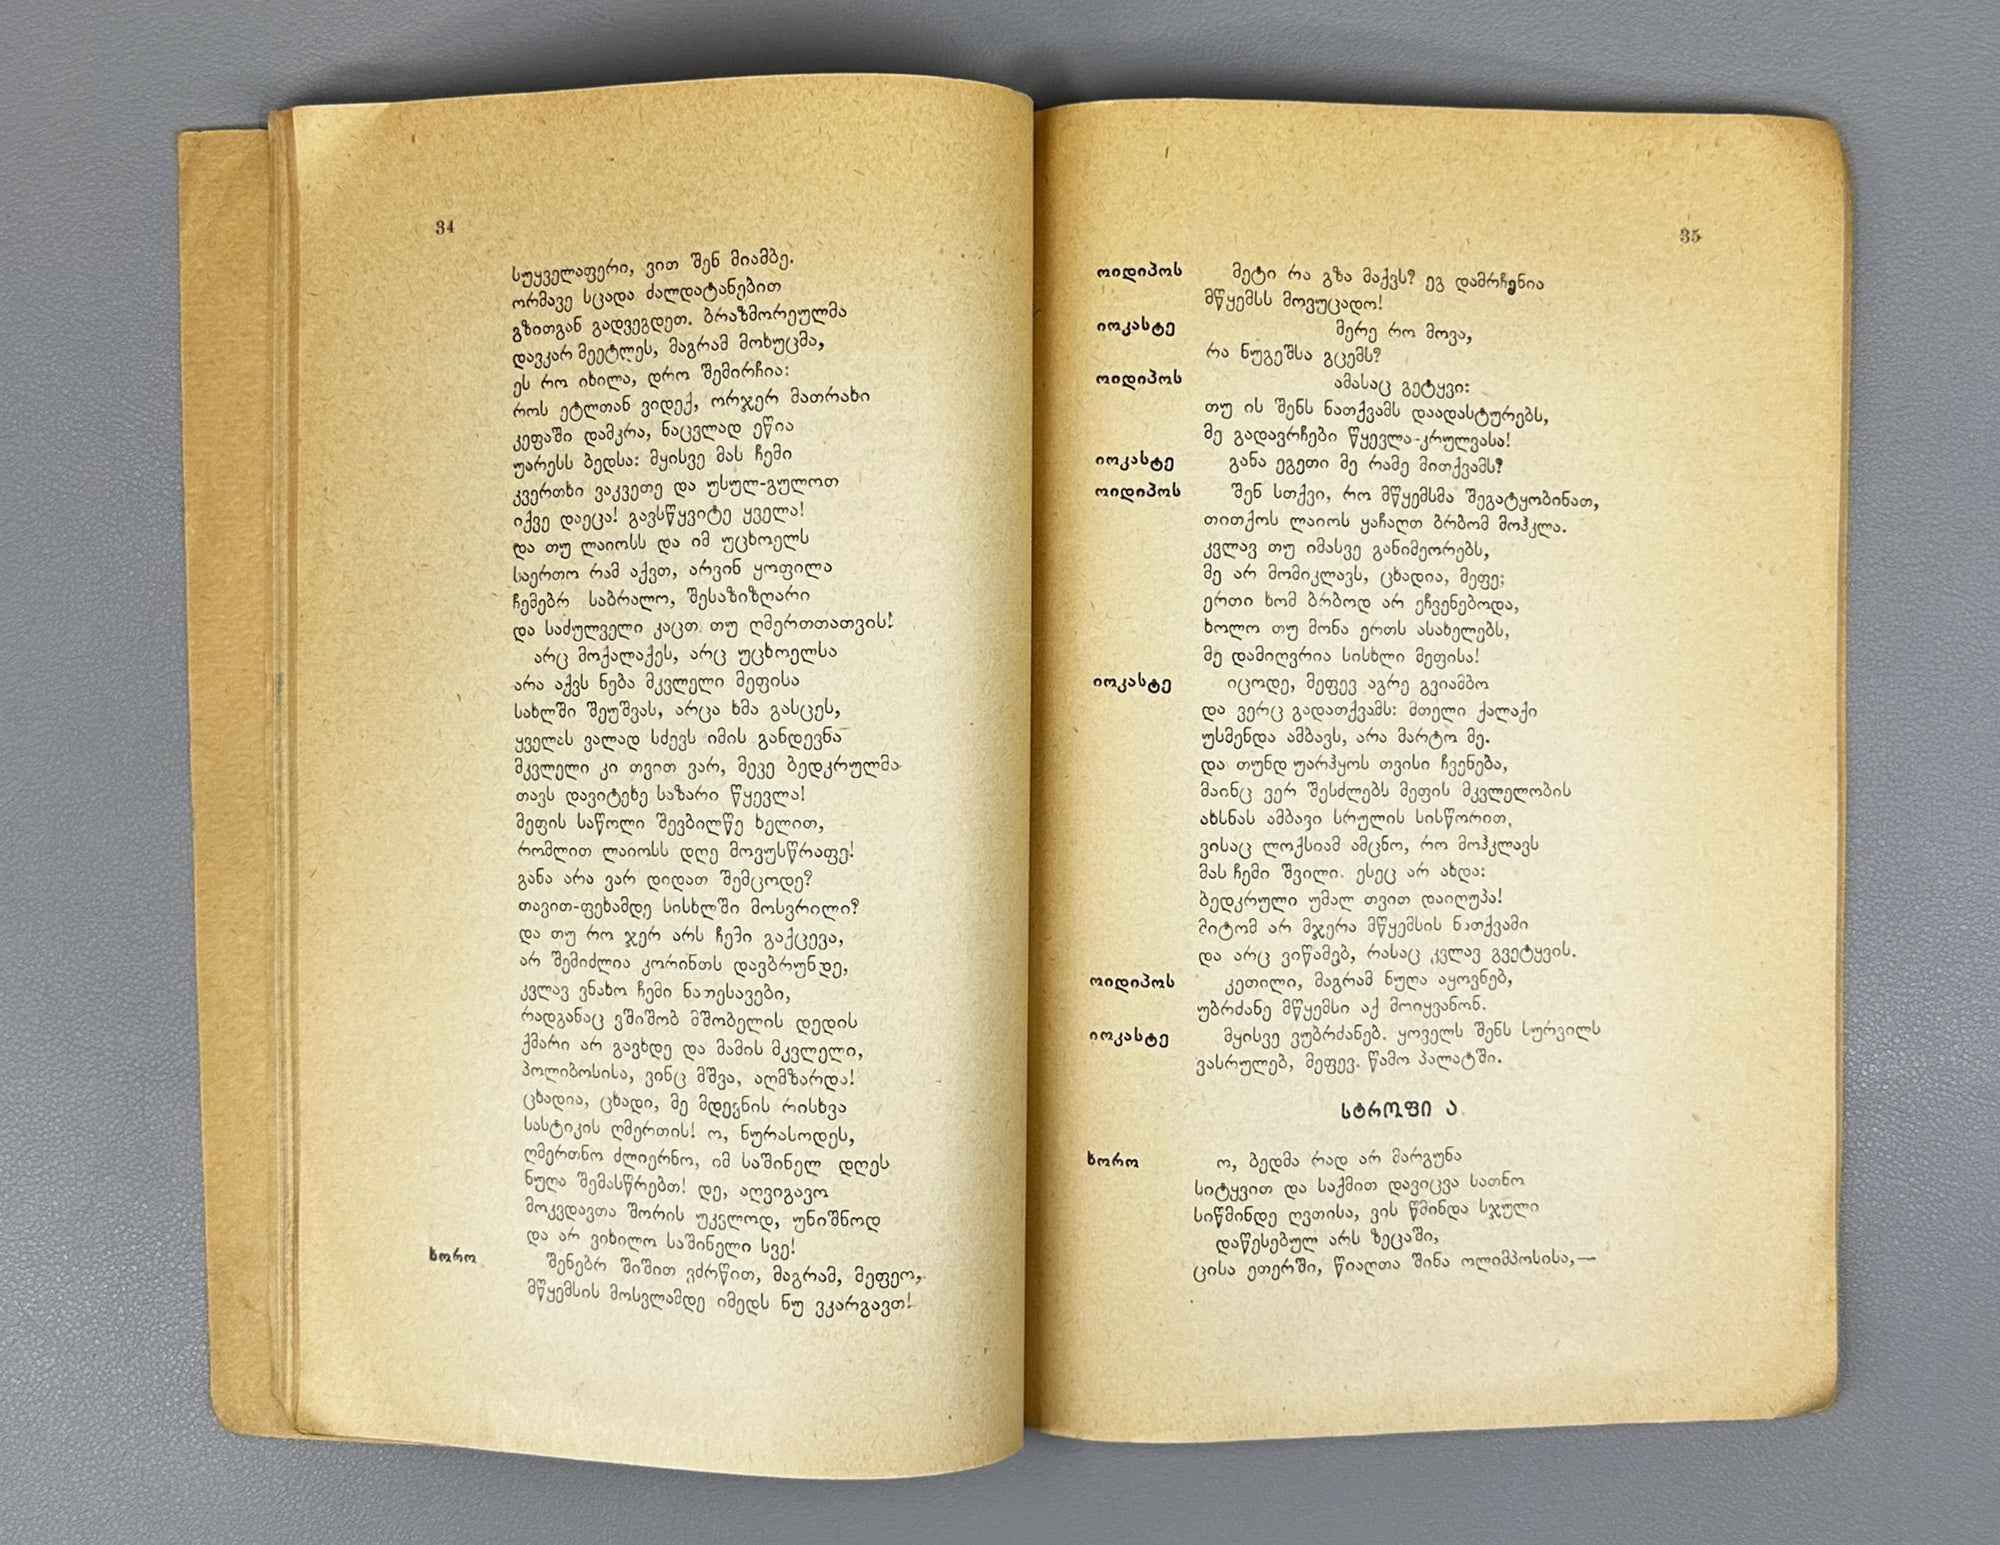 34
სუყველაფერი, ვით შენ მიამბე.
ორმავე სცადა ძალდატანებით
გზითგან გადვეგდეთ. ბრაზმორეულმა
დავკარ მეეტლეს, მაგრამ მოხუცმა,
ეს რო იხილა, დრო შემირჩია:
როს ეტლთან ვიდექ, ორჯერ მათრახი
კეფაში დამკრა, ნაცვლად ეწია
უარესს ბედსა: მყისვე მას ჩემი
კვერთხი ვაკვეთე და უსულ-გულოთ
იქვე დაეცა! გავსწყვიტე ყველა!
და თუ ლაიოსს და იმ უცხოელს
საერთო რამ აქვთ, არვინ ყოფილა
ჩემებრ საბრალო, შესაზიზღარი
და საძულველი კაცთ თუ ღმერთთათვის!
არც მოქალაქეს, არც უცხოელსა
არა აქვს ნება მკვლელი მეფისა
სახლში შეუშვას, არცა ხმა გასცეს,
ყველას ვალად სძევს იმის განდევნა
მკვლელი კი თვით ვარ, მევე ბედკრულმა
თავს დავიტეხე საზარი წყევლა!
მეფის საწოლი შევბილწე ხელით,
რომლით ლაიოსს დღე მოვუსწრაფე!
განა არა ვარ დიდათ შემცოდე?
თავით-ფეხამდე სისხლში მოსვრილი?
და თუ რო ჯერ არს ჩემი გაქცევა,
არ შემიძლია კორინთს დავბრუნდე,
კვლავ ვნახო ჩემი ნათესავები,
რადგანაც ვშიშობ მშობელის დედის
ქმარი არ გავხდე და მამის მკვლელი,
პოლიბოსისა, ვინც მშვა, აღმზარდა!
ცხადია, ცხადი, მე მდევნის რისხვა
სასტიკის ღმერთის! ო, ნურასოდეს,
ღმერთნო ძლიერნო, იმ საშინელ დღეს
ნუღა შემასწრებთ! დე, აღვიგავო
მოკვდავთა შორის უკვლოდ, უნიშნოდ
და არ ვიხილო საშინელი სვე!
ხორო შენებრ შიშით ვძრწით, მაგრამ, მეფეო,
მწყემსის მოსვლამდე იმედს ნუ ვკარგავთ!
35
ოიდიპოს მეტი რა გზა მაქვს? ეგ დამრჩენია
მწყემსს მოვუცადო!
იოკასტე მერე რო მოვა,
რა ნუგეშსა გცემს?
ოიდიპოს ამასაც გეტყვი:
თუ ის შენს ნათქვამს დაადასტურებს,
მე გადავრჩები წყევლა-კრულვასა!
იოკასტე განა ეგეთი მე რამე მითქვამს?
ოიდიპოს შენ სთქვი, რო მწყემსმა შეგატყობინათ,
თითქოს ლაიოს ყაჩაღთ ბრბომ მოჰკლა.
კვლავ თუ იმასვე განიმეორებს,
მე არ მომიკლავს, ცხადია, მეფე;
ერთი ხომ ბრბოდ არ ეჩვენებოდა,
ხოლო თუ მონა ერთს ასახელებს,
მე დამიღვრია სისხლი მეფისა!
იოკასტე იცოდე, მეფევ აგრე გვიამბო
და ვერც გადათქვამს: მთელი ქალაქი
უსმენდა ამბავს, არა მარტო მე.
და თუნდ უარჰყოს თვისი ჩვენება,
მაინც ვერ შესძლებს მეფის მკვლელობის
ახსნას ამბავი სრულის სისწორით,
ვისაც ლოქსიამ ამცნო, რო მოჰკლავს
მას ჩემი შვილი. ესეც არ ახდა:
ბედკრული უმალ თვით დაიღუპა!
მიტომ არ მჯერა მწყემსის ნათქვამი
და არც ვიწამებ, რასაც კვლავ გვეტყვის.
ოიდიპოს კეთილი, მაგრამ ნუღა აყოვნებ,
უბრძანე მწყემსი აქ მოიყვანონ.
იოკასტე მყისვე ვუბრძანებ. ყოველს შენს სურვილს
ვასრულებ, მეფევ. წამო პალატში.
სტროფი ა
ხორო ო, ბედმა რად არ მარგუნა
სიტყვით და საქმით დავიცვა სათნო
სიწმინდე ღვთისა, ვის წმინდა სჯული
დაწესებულ არს ზეცაში,
ცისა ეთერში, წიაღთა შინა ოლიმპოსისა,—